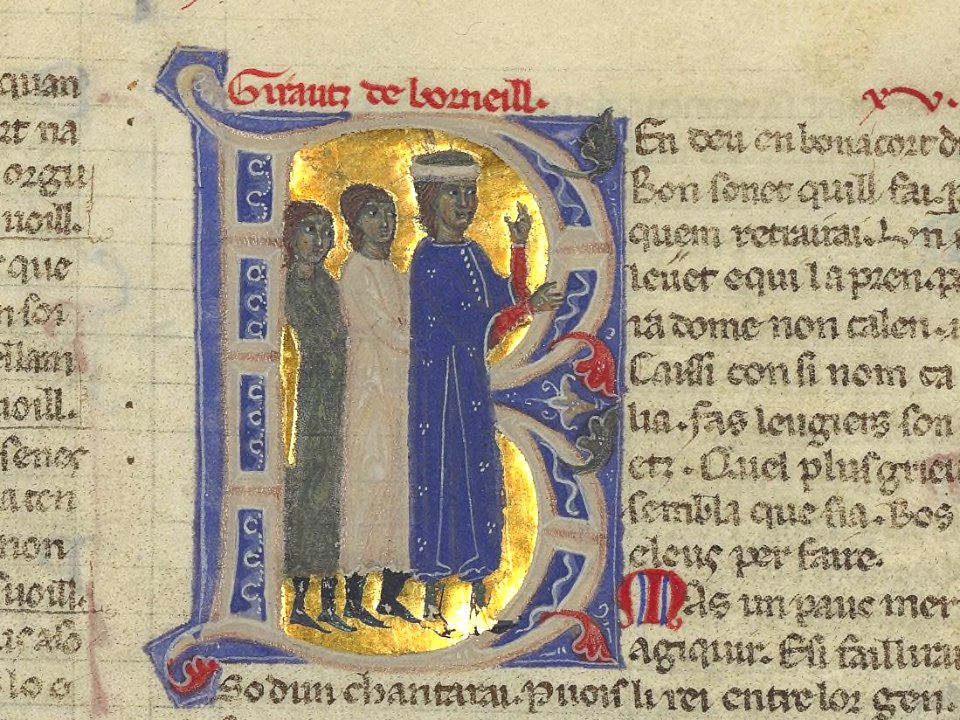 quan
rt na
orgu
uoill.
que
n sor
uoill.
senes
a ten
non
uoill.
lo o
Girautz de borneill.
xv.
En deu en bona cort d
Bon sonet quill fai. p
quem retrairai. Un
leuet e qui la pren. p
ia dome non calen.
Caissi con si nom ca
lia. fas leugiers son
etz. Cuel plus grieu
sembla que sia. Bos
eleus per faire.
Mas un pauc mer
agiquir. Eu faillirai
So dun chantarai. Puois li rei entre lor gen.